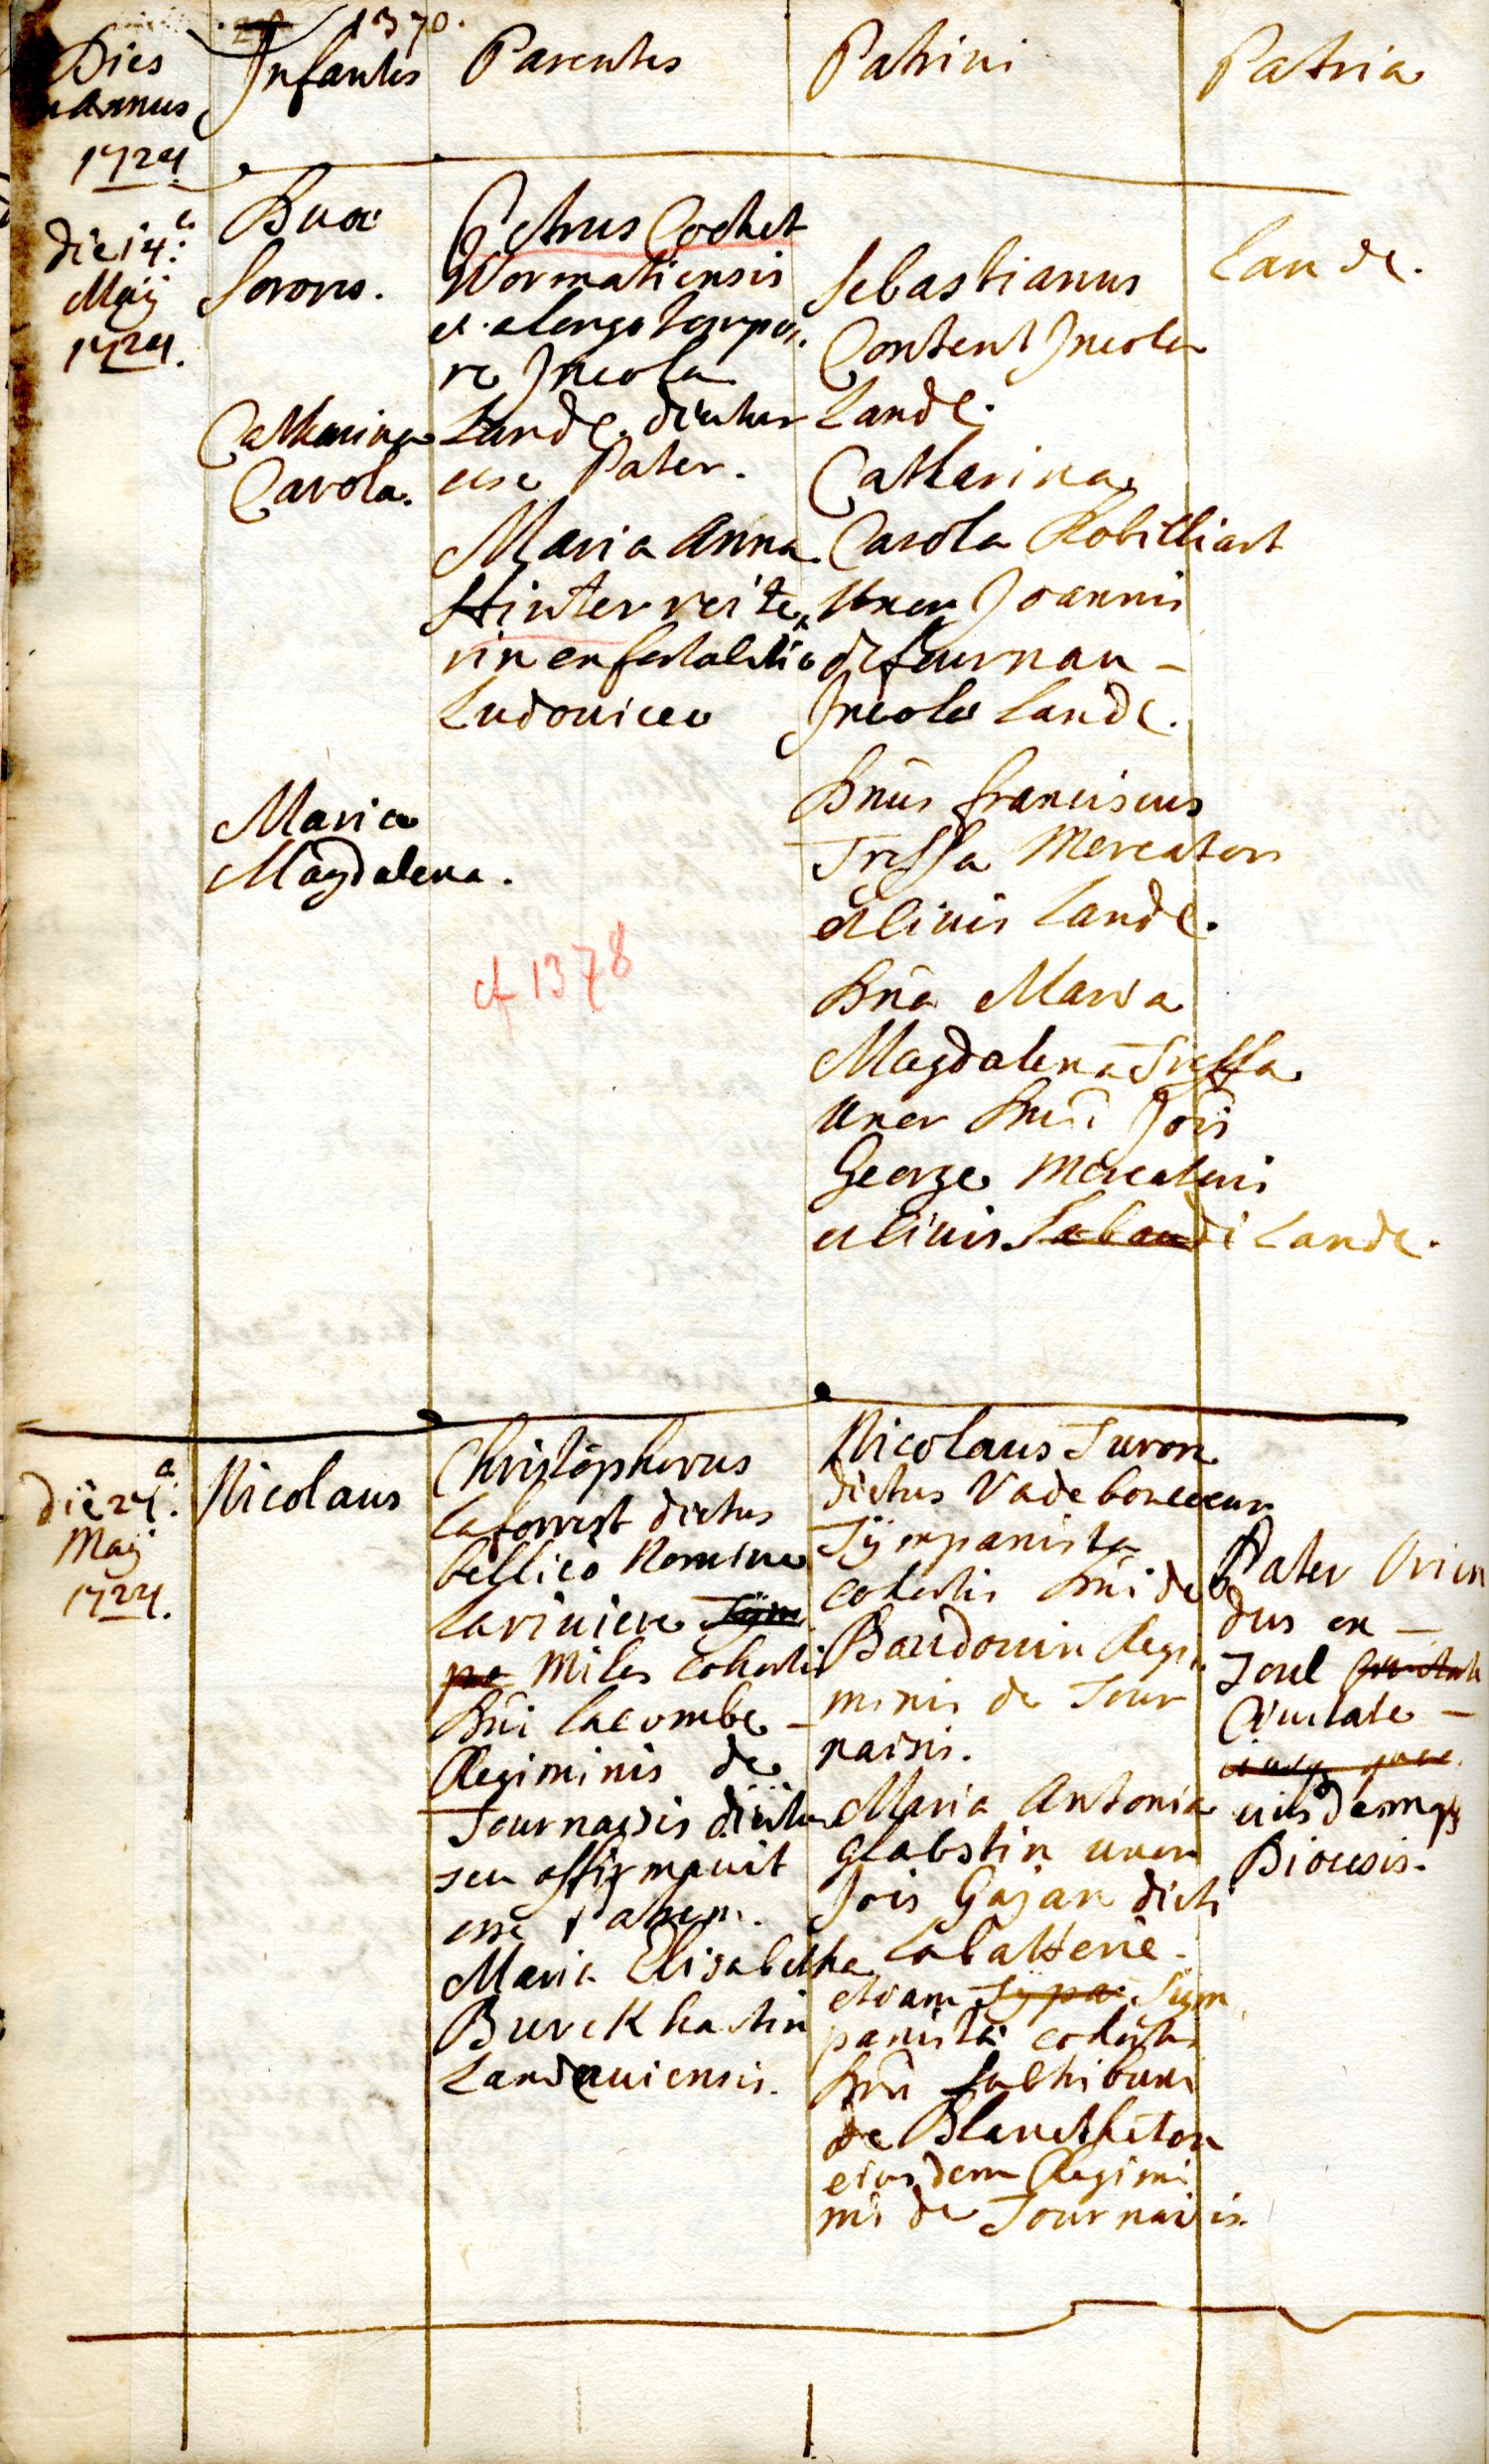 1370.
Dies
annus
1724
Infantes
Parentes
Patrini
Patria
die 14.a
Maij
1724.
Duæ
Sorores.
Catharina
Carola.
Maria
Magdalena.
Petrus Cochet
Wormatiensis
et a longo tempo-
re Incola
Land. dicitur
esse Pater.
Maria Anna
Hinterreite-
rin ex fortalitio
Ludoviceo
cf 1378
Sebastianus
Content Incola
Land.
Catharina
Carola Robilliart
Uxor Joannis
defournau -
Incola Land.
Dnus franciscus
Tressa Mercator
et Civis Land.
Dna Maria
Magdalena Tressa
uxor Dni Jois
George Mercatoris
et civis Sabaudi Land.
Land.
die 24.a
Maij
1724.
Nicolaus
Christophorus
Laforrest dictus
bellico Nomine
Lariviere Tym
pa Miles Cohortis
Dni Lacombe -
Regiminis de
Tournaisis dicitur
seu affirmavit
esse Pater.
Maria Elisabetha
Burckhartin
Landaviensis.
Nicolaus Turon
dictus Vadeboncoeur
Tympanista
cohortis Dni de
Baudouin Regi-
minis de Tour
naisis.
Maria Antonia
Glabstin uxor
Jois Gajan dicti
Labatterie
etiam Tympa Tym
panistæ cohortis
Dni
de Blancheton
eiusdem Regimi
nis de Tournaisis.
Pater Oriun
dus ex -
Toul
Civitate -
eiusdemq
Diocesis.